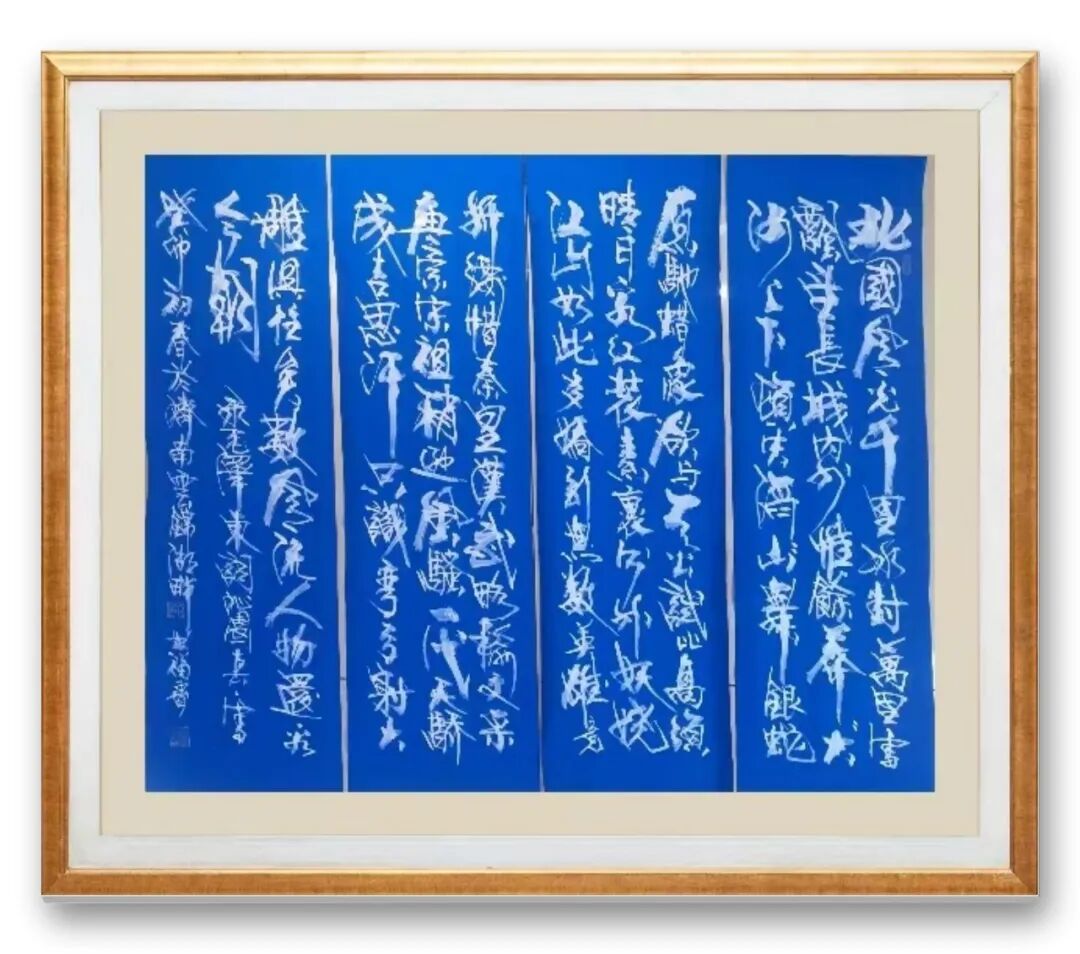 北國風光千里冰封萬里雪
飄望長城內外惟餘莽莽大
河上下頓失滔滔山舞銀蛇
原馳蜡象欲与天公試比高須
晴日看紅裝素裹分外妖嬈
江山如此多嬌引無數英雄竞
折腰惜秦皇漢武略輸文采
唐宗宋祖稍遜風騷一代天驕
成吉思汗只識彎弓射大
雕俱往矣數風流人物還看
今朝 錄毛澤東詞沁園春雪
癸卯初春於濟南雲錦湖畔